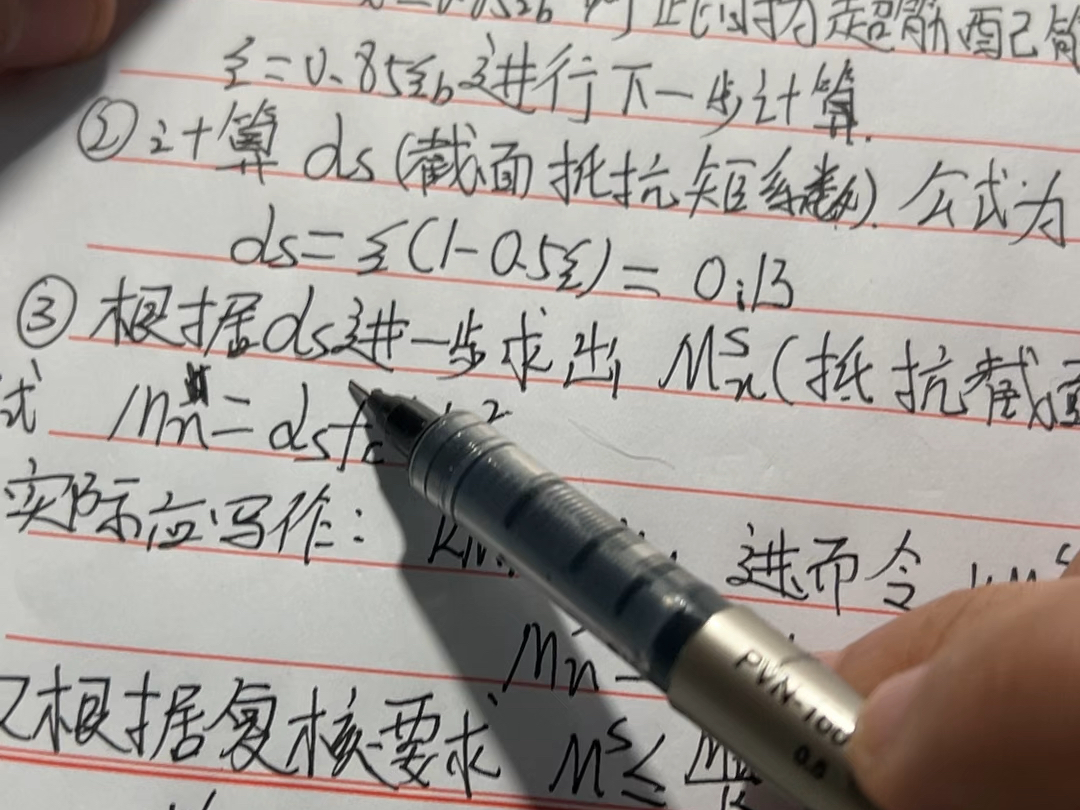 为超筋配
ξ=0.85ξb进行下一步计算.
② 计算 ds(截面抵抗矩系数). 公式为
ds=ξ(1-0.5ξ)=0.13
③ 根据ds进一步求出 Mₙˢ(抵抗截面
式 Mn = ds fc
实际应写作: 进而令
Mn
又根据复核要求 Mˢ≤
PVN-100
0.5